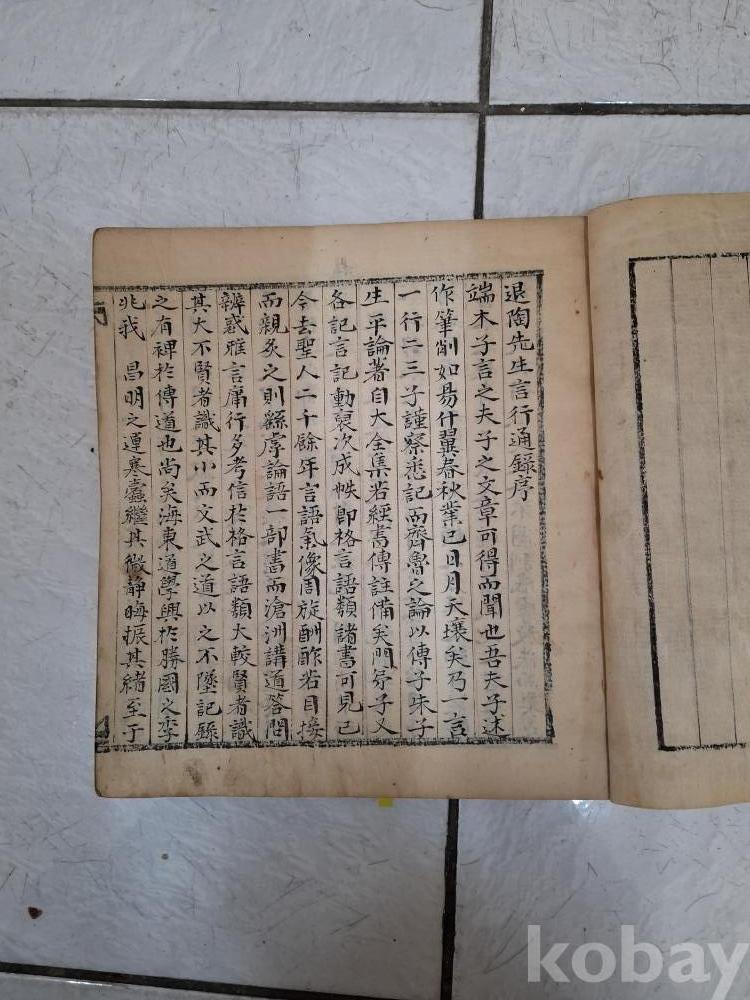 退陶先生言行通錄序
端木子言之夫子之文章可得而聞也吾夫子述
作筆削如易什翼春秋業已日月天壤矣乃一言
一行二三子謹察悉記而齊魯之論以傳子朱子
生平論著自大全集若經書傳註備矣門弟子又
各記言記動裒次成帙即格言語類諸書可見已
今去聖人二千餘年言語氣像周旋酬酢若目接
而親炙之則繇序論語一部書而滄洲講道答問
辨惑雅言庸行多考信於格言語類大較賢者識
其大不賢者識其小而文武之道以之不墜記錄
之有裨於傳道也尚矣海東道學興於勝國之季
兆我 昌明之運寒蠹繼其微靜晦振其緒至于
kobay